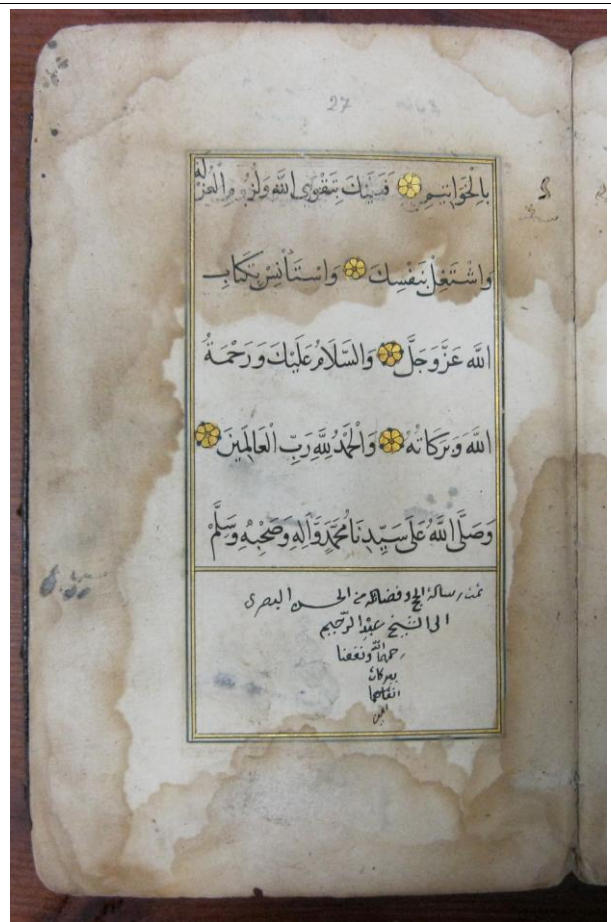 27
بِالْخَوَاتِيمِ فَعَلَيْكَ بِتَقْوَى اللّٰهِ وَلُزُومِ الْعُزْلَةِ
وَاشْتَغِلْ بِنَفْسِكَ وَاسْتَأْنِسْ بِكِتَابِ
اللّٰهِ عَزَّ وَجَلَّ وَالسَّلَامُ عَلَيْكَ وَرَحْمَةُ
اللّٰهِ وَبَرَكَاتُهُ وَالْحَمْدُ لِلّٰهِ رَبِّ الْعَالَمِينَ
وَصَلَّى اللّٰهُ عَلَى سَيِّدِنَا مُحَمَّدٍ وَّاٰلِهِ وَصَحْبِهِ وَسَلَّمْ
تمت رسالة الحج وفضائله من الحسن البصرى
الى الشيخ عبد الرحيم
رحمهما الله ونفعنا
ببركات
انفاسهما
امين